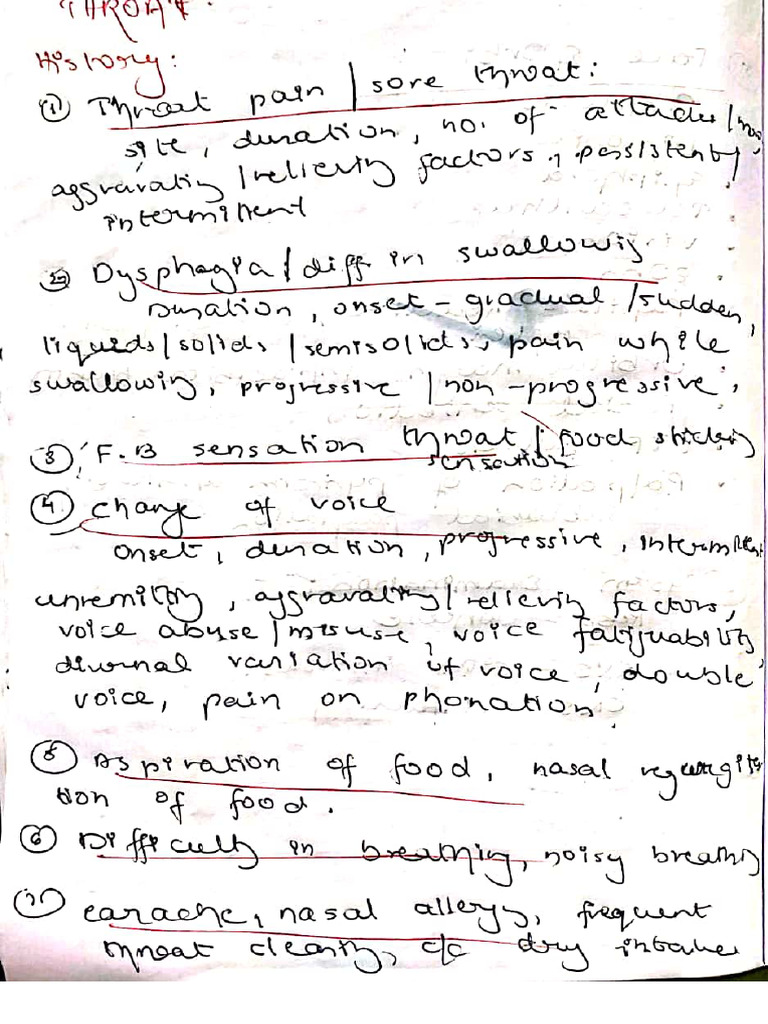 THROAT.
History:
① Throat pain / sore throat:
site, duration, no. of attacks /
aggravating / relieving factors, persistent /
intermittent
② Dysphagia / diff in swallowing
Duration, onset - gradual / sudden,
liquids / solids / semisolids, pain while
swallowing, progressive / non-progressive,
③ F.B sensation throat / food sticking
sensation
④ Change of voice
onset, duration, progressive, intermittent
unremitting, aggravating / relieving factors,
voice abuse / misuse, voice fatiguability
diurnal variation of voice, double
voice, pain on phonation.
⑤ Aspiration of food, nasal regurgita
tion of food.
⑥ Difficulty in breathing, noisy breathing
⑦ earache, nasal allergy, frequent
throat clearing, c/c dry intake